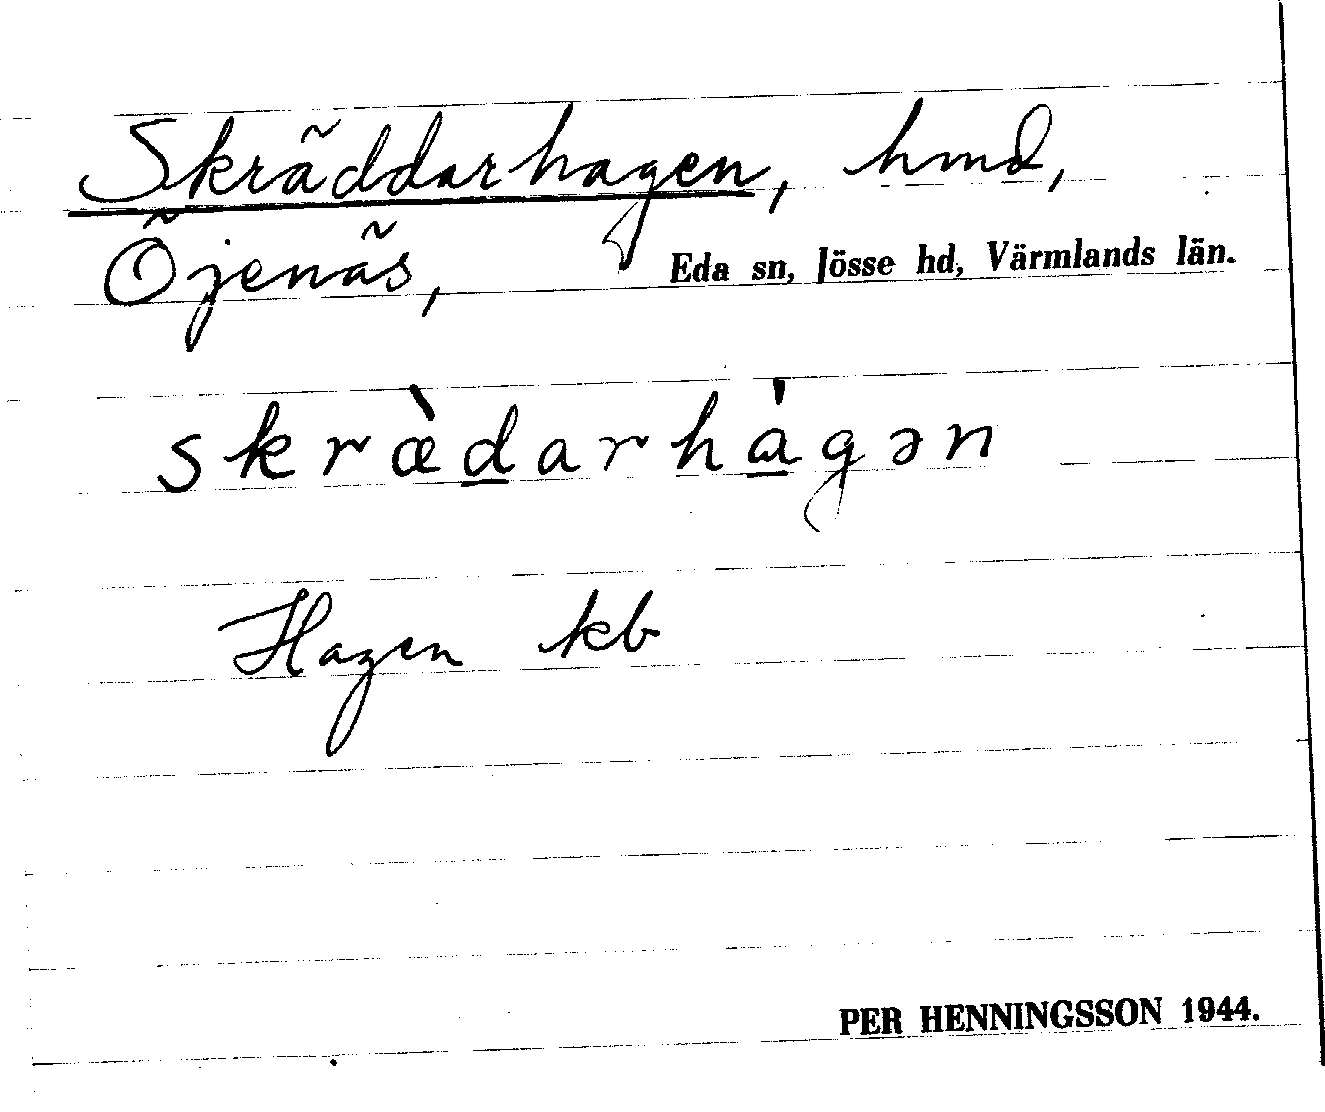 Skräddarhagen, hmd,
Öjenäs, Eda sn, Jösse hd, Värmlands län.
skræ̀darhàgən
Hagen kb
PER HENNINGSSON 1944.